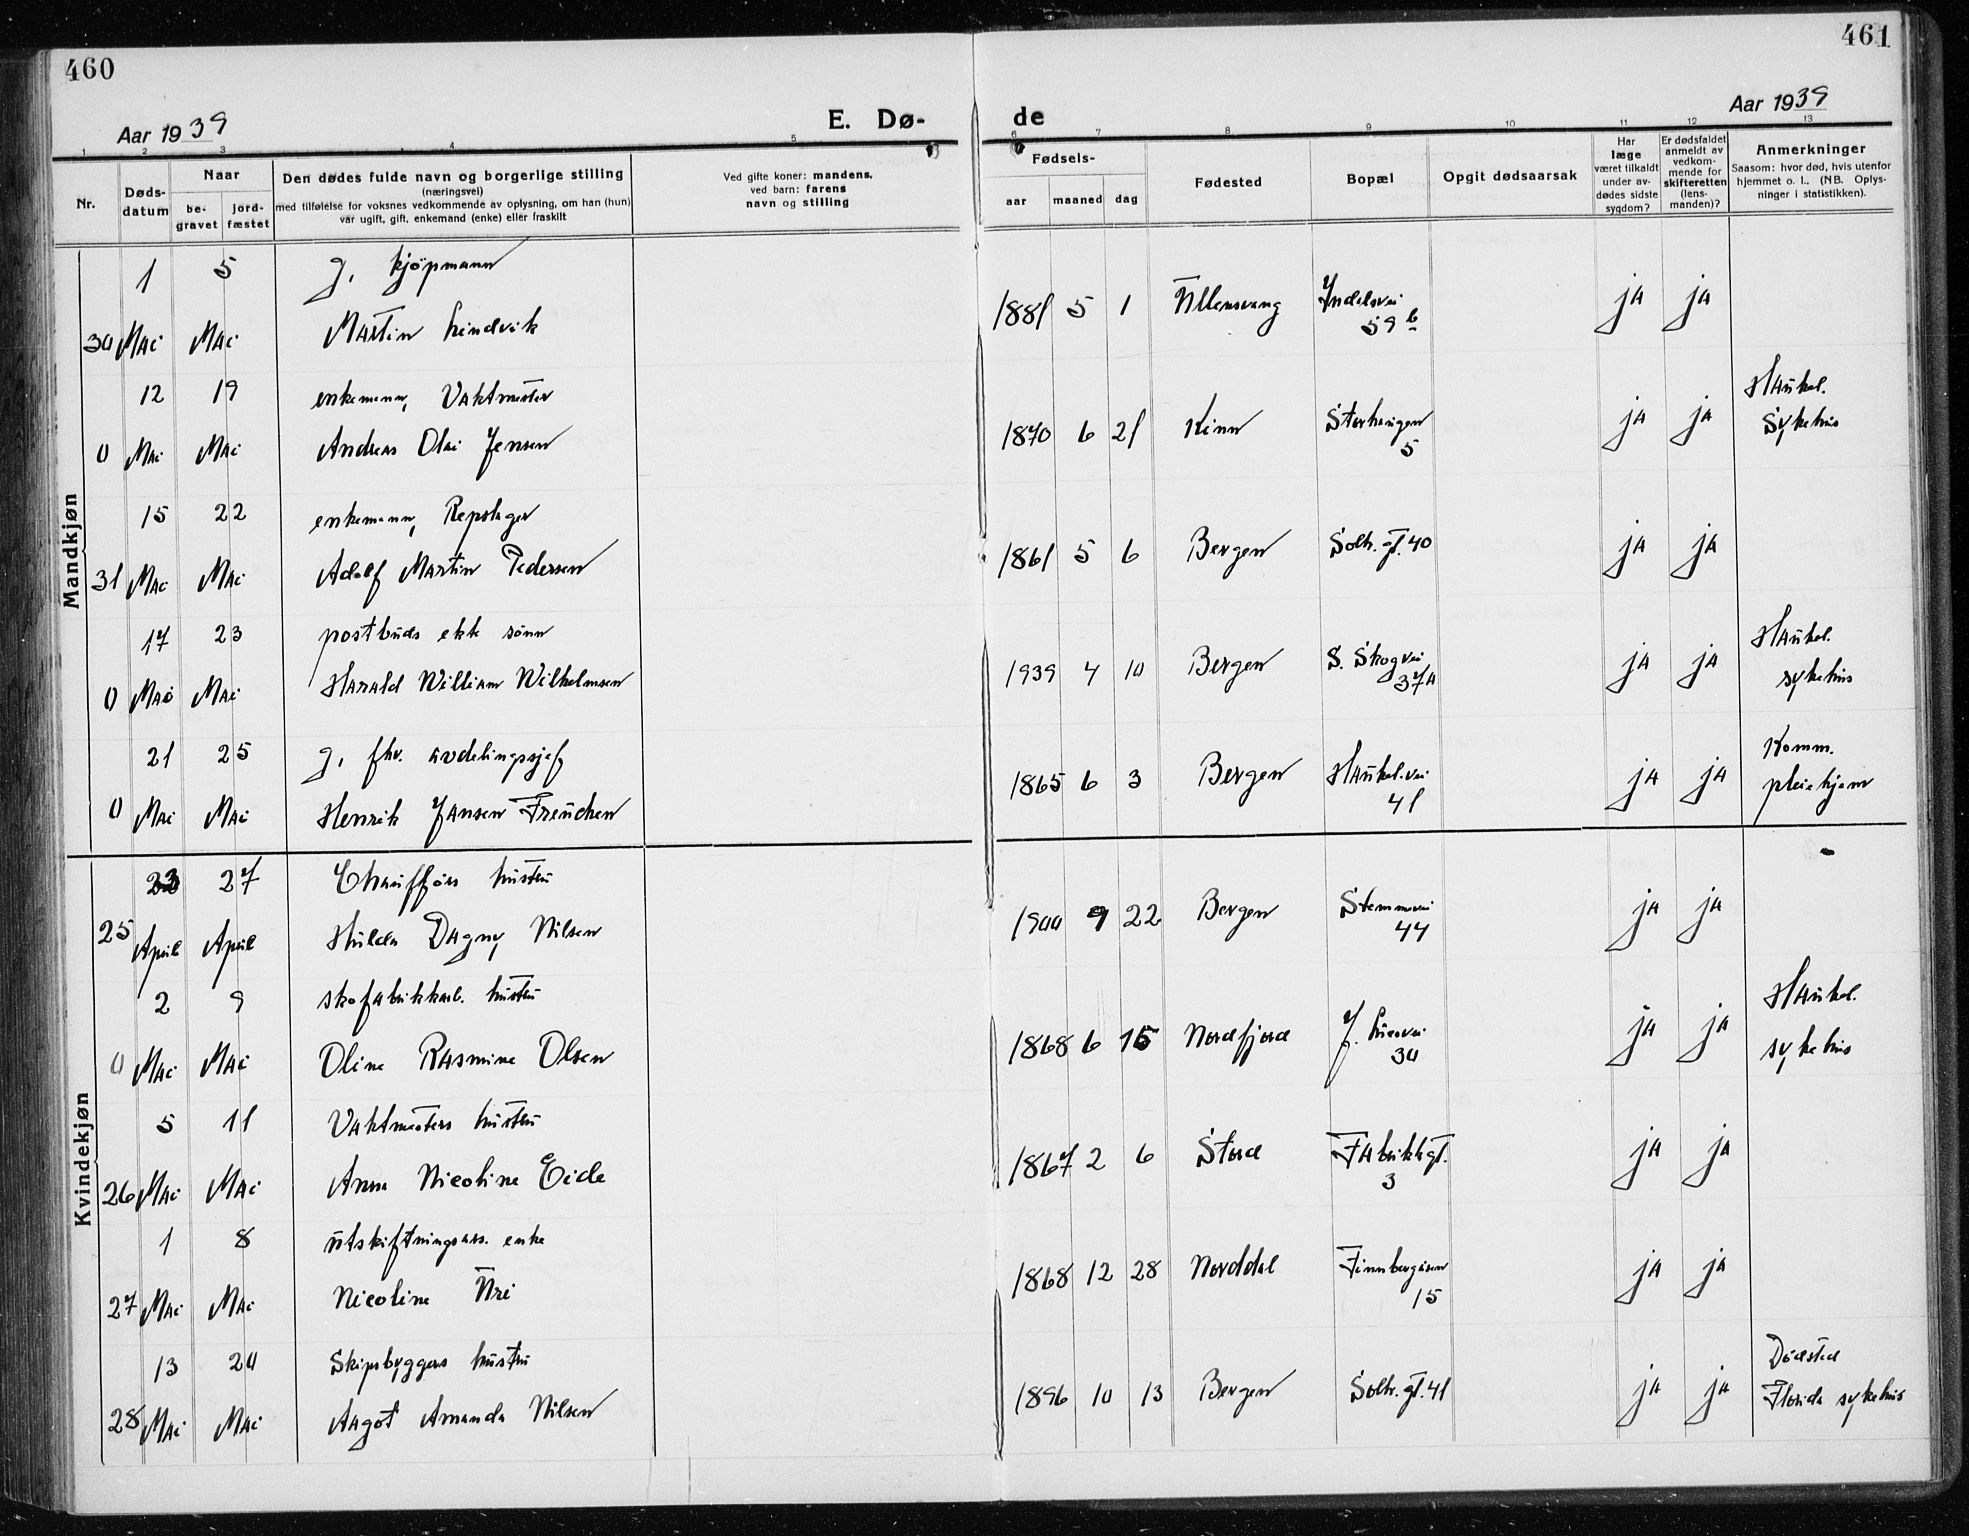 460
461
Aar 1939
E. Dø-
de
Aar 1939
1 2 3 4 5 6 7 8 9 10 11 12 13
Nr.
Døds-
datum
Naar
be-
gravet
jord-
fæstet
Den dødes fulde navn og borgerlige stilling
(næringsvei)
med tilføielse for voksnes vedkommende av oplysning, om han (hun)
var ugift, gift, enkemand (enke) eller fraskilt
Ved gifte koner: mandens,
ved barn: farens
navn og stilling
Fødsels-
aar
maaned
dag
Fødested
Bopæl
Opgit dødsaarsak
Har
læge
været tilkaldt
under av-
dødes sidste
sygdom?
Er dødsfaldet
anmeldt av
vedkom-
mende for
skifteretten
(lens-
manden)?
Anmerkninger
Saasom: hvor død, hvis utenfor
hjemmet o. l.. (NB. Oplys-
ninger i statistikken).
Mandkjøn
1 5 g. kjøpmann
30 Mai Mai Martin Lindvik
1881 5 1 Ullensvang Indalsvei ja ja
59 b
12 19 enkemann, Vaktmester
0 Mai Mai Andreas Olai Jensen
1870 6 21 Kinn Storhaugen ja ja
5
Haukel.
Sykehus
15 22 enkemann, Repslager
31 Mai Mai Adolf Martin Pedersen
1861 5 6 Bergen Solh. gt. 40 ja ja
17 23 postbuds ekte sønn
0 Mai Mai Harald William Wilhelmsen
1939 4 10 Bergen S. Skogvei ja ja
37A
Haukel.
sykehus
21 25 g. fhv. avdelingssjef
0 Mai Mai Henrik Jansen Freuchen
1865 6 3 Bergen Haukel.vei ja ja
41
Komm.
pleiehjem
Kvindekjøn
23 27 Chaufførs hustru
25 April April Hulda Dagny Nilsen
1900 9 22 Bergen Stemmevei ja ja
44
2 9 skofabrikkarb. hustru
0 Mai Mai Oline Rasmine Olsen
1868 6 15 Nordfjord J. Liesvei ja ja
30
Haukel.
sykehus
5 11 Vaktmesters hustru
26 Mai Mai Anna Nicoline Eide
1867 2 6 Stord Fabrikkgt. ja ja
3
1 8 utskiftningsass. enke
27 Mai Mai Nicoline Uri
1868 12 28 Norddal Finnbergåsen ja ja
15
13 20 Skipsbyggers hustru
28 Mai Mai Aagot Amanda Nilsen
1896 10 13 Bergen Solh. gt. 41 ja ja
Dødsted
Florida sykehus